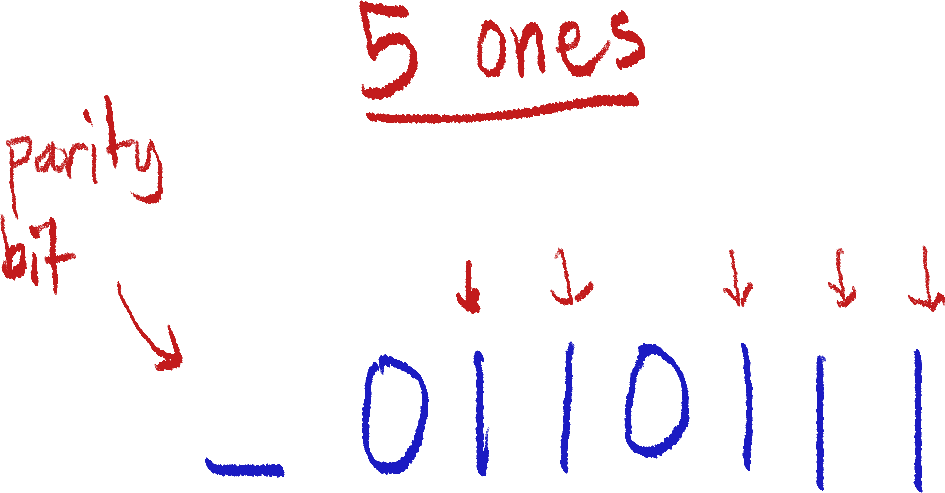 5 ones
parity
bit
_ 0110111